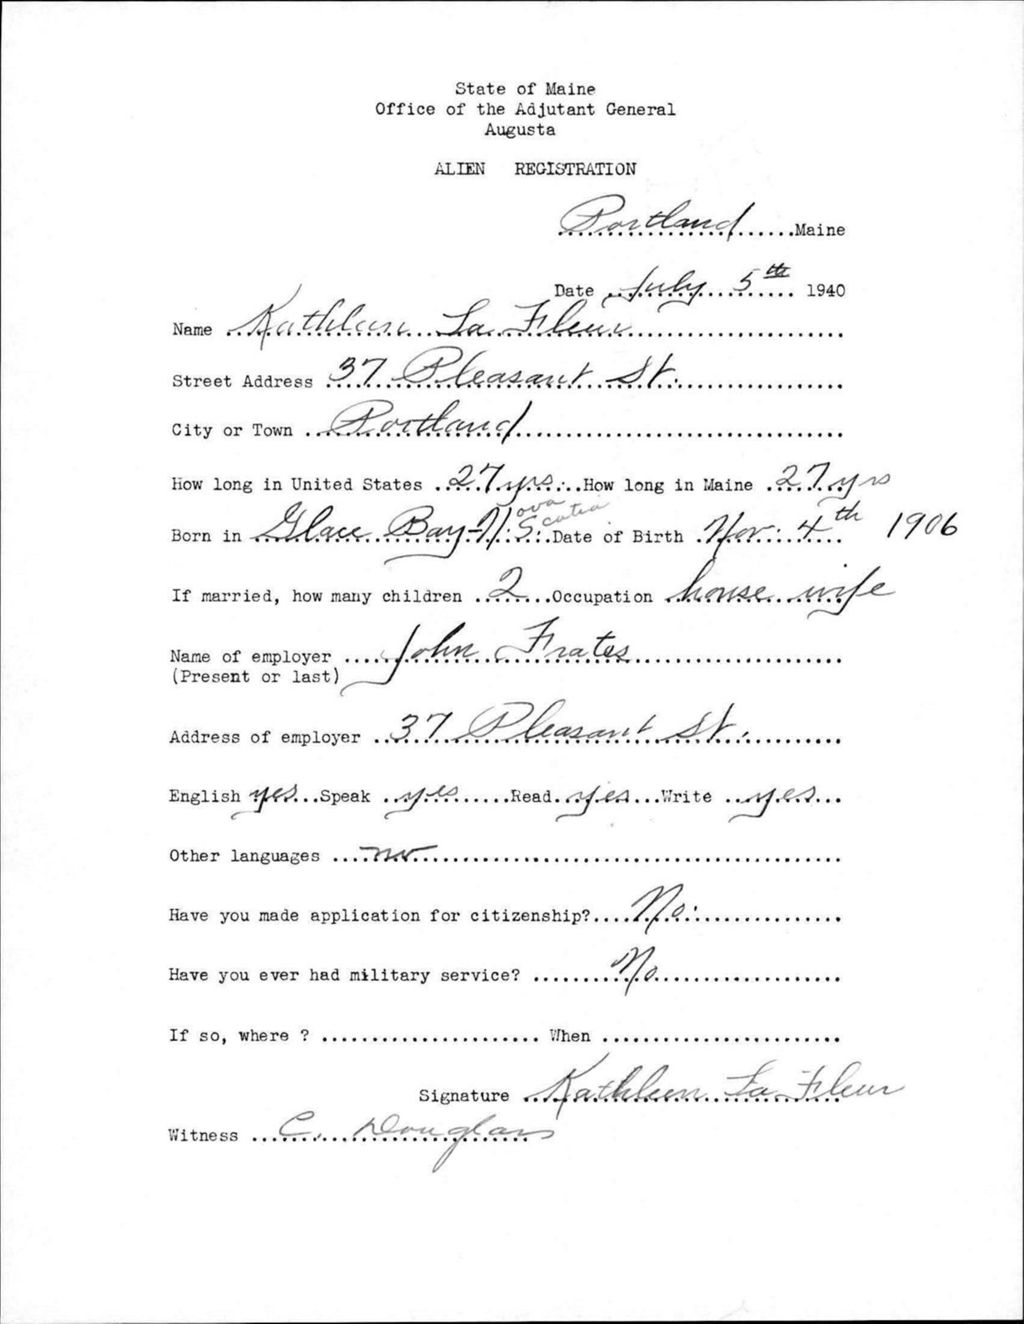 State of Maine
Office of the Adjutant General
Augusta
ALIEN REGISTRATION
Portland......Maine
Date July 5th 1940
Name Kathleen La Fleur
Street Address 37 Pleasant St.
City or Town Portland
How long in United States 27 yrs How long in Maine 27 yrs
Born in Glace Bay-Nova Scotia Date of Birth Nov. 4th 1906
If married, how many children 2 Occupation house wife
Name of employer John Frates
(Present or last)
Address of employer 37 Pleasant St.
English yes Speak yes Read yes Write yes
Other languages no
Have you made application for citizenship? No
Have you ever had military service? No
If so, where ? ...................... When ........................
Signature Kathleen La Fleur
Witness C. Douglass